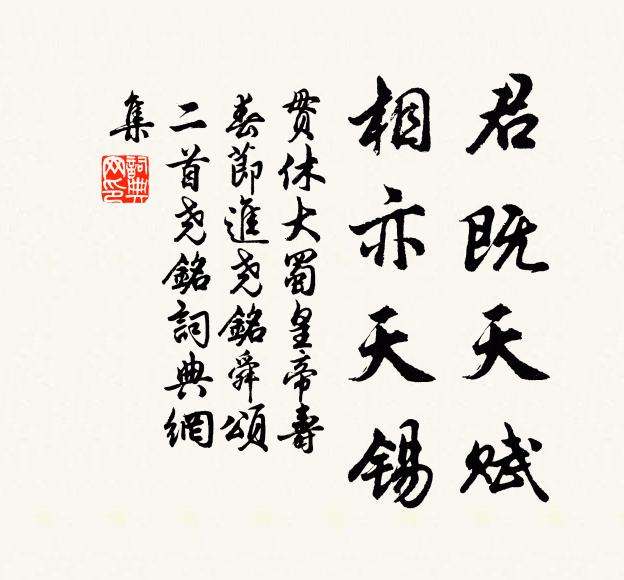 君既天赋
相亦天锡
贯休大蜀皇帝寿
春節進尧銘舜頌
二首尧銘詞典網
集
詞典
网印